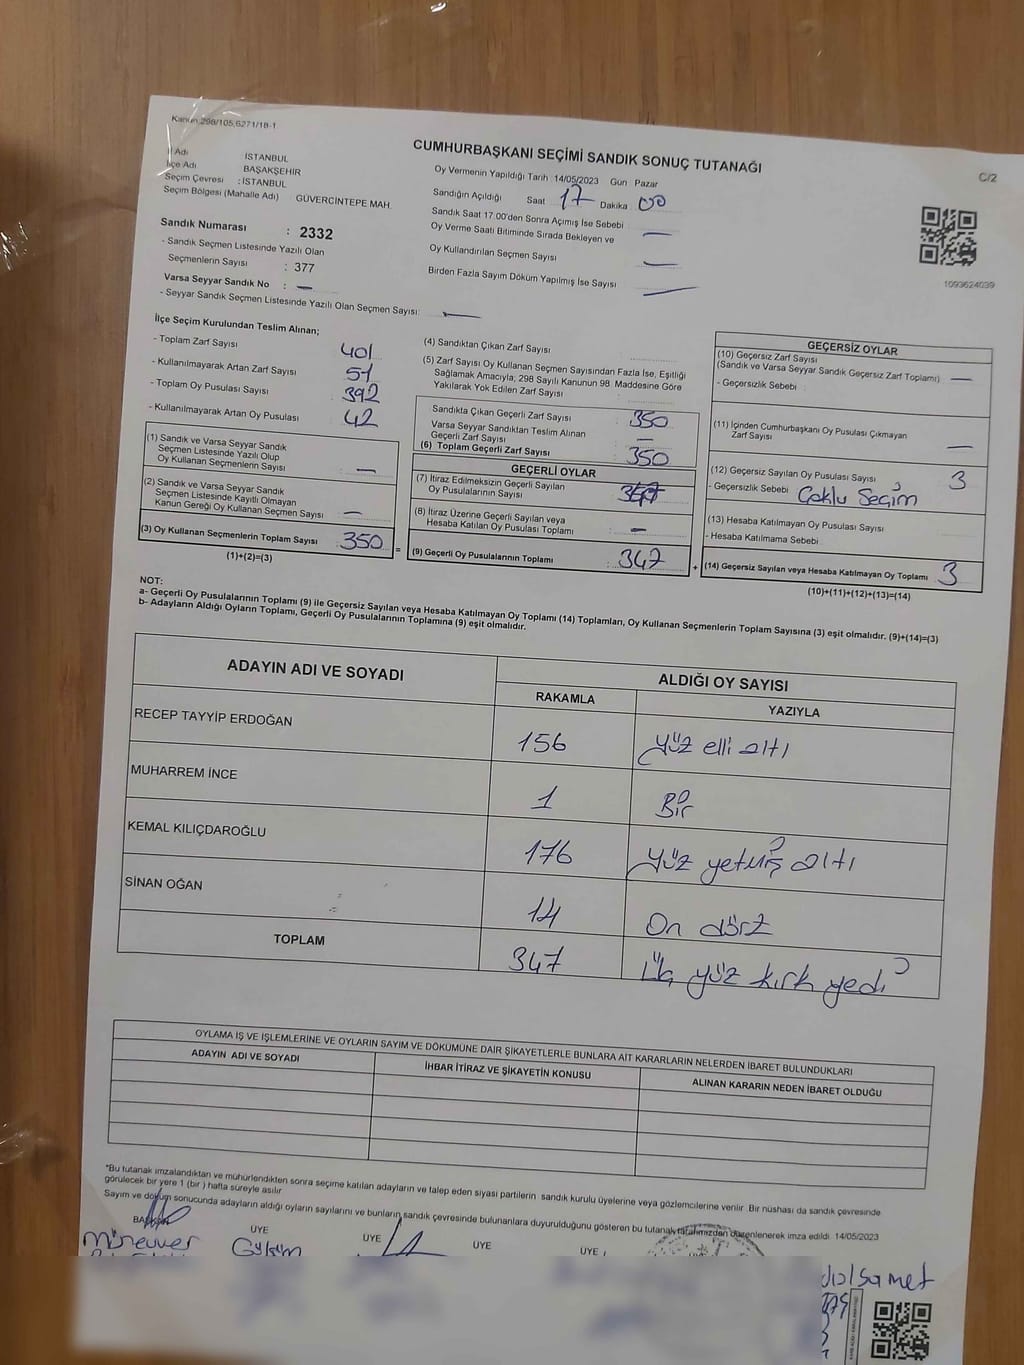 Kanun:298/105,6271/18-1
CUMHURBAŞKANI SEÇİMİ SANDIK SONUÇ TUTANAĞI
C/2
İl Adı İSTANBUL
İlçe Adı BAŞAKŞEHİR
Seçim Çevresi : İSTANBUL
Seçim Bölgesi (Mahalle Adı) GÜVERCİNTEPE MAH.
Oy Vermenin Yapıldığı Tarih 14/05/2023 Gün Pazar
Sandığın Açıldığı Saat 17 Dakika 00
Sandık Saat 17.00'den Sonra Açımış İse Sebebi
Oy Verme Saati Bitiminde Sırada Bekleyen ve —
Oy Kullandırılan Seçmen Sayısı —
Birden Fazla Sayım Döküm Yapılmış İse Sayısı —
1093624039
Sandık Numarası : 2332
- Sandık Seçmen Listesinde Yazılı Olan
Seçmenlerin Sayısı : 377
Varsa Seyyar Sandık No : —
- Seyyar Sandık Seçmen Listesinde Yazılı Olan Seçmen Sayısı: —
İlçe Seçim Kurulundan Teslim Alınan;
- Toplam Zarf Sayısı 401
- Kullanılmayarak Artan Zarf Sayısı 51
- Toplam Oy Pusulası Sayısı 392
- Kullanılmayarak Artan Oy Pusulası 42
(1) Sandık ve Varsa Seyyar Sandık
Seçmen Listesinde Yazılı Olup
Oy Kullanan Seçmenlerin Sayısı —
(2) Sandık ve Varsa Seyyar Sandık
Seçmen Listesinde Kayıtlı Olmayan
Kanun Gereği Oy Kullanan Seçmen Sayısı —
(3) Oy Kullanan Seçmenlerin Toplam Sayısı 350
(1)+(2)=(3)
=
(4) Sandıktan Çıkan Zarf Sayısı
(5) Zarf Sayısı Oy Kullanan Seçmen Sayısından Fazla İse, Eşitliği
Sağlamak Amacıyla; 298 Sayılı Kanunun 98. Maddesine Göre
Yakılarak Yok Edilen Zarf Sayısı
Sandıkta Çıkan Geçerli Zarf Sayısı : 350
Varsa Seyyar Sandıktan Teslim Alınan
Geçerli Zarf Sayısı : —
(6) Toplam Geçerli Zarf Sayısı : 350
GEÇERLİ OYLAR
(7) İtiraz Edilmeksizin Geçerli Sayılan
Oy Pusulalarının Sayısı : 347
(8) İtiraz Üzerine Geçerli Sayılan veya
Hesaba Katılan Oy Pusulası Toplamı : —
(9) Geçerli Oy Pusulalarının Toplamı : 347
+
GEÇERSİZ OYLAR
(10) Geçersiz Zarf Sayısı
(Sandık ve Varsa Seyyar Sandık Geçersiz Zarf Toplamı) —
- Geçersizlik Sebebi
(11) İçinden Cumhurbaşkanı Oy Pusulası Çıkmayan
Zarf Sayısı —
(12) Geçersiz Sayılan Oy Pusulası Sayısı 3
- Geçersizlik Sebebi Çoklu Seçim
(13) Hesaba Katılmayan Oy Pusulası Sayısı
- Hesaba Katılmama Sebebi
(14) Geçersiz Sayılan veya Hesaba Katılmayan Oy Toplamı 3
(10)+(11)+(12)+(13)=(14)
NOT:
a- Geçerli Oy Pusulalarının Toplamı (9) ile Geçersiz Sayılan veya Hesaba Katılmayan Oy Toplamı (14) Toplamları, Oy Kullanan Seçmenlerin Toplam Sayısına (3) eşit olmalıdır. (9)+(14)=(3)
b- Adayların Aldığı Oyların Toplamı, Geçerli Oy Pusulalarının Toplamına (9) eşit olmalıdır.
ADAYIN ADI VE SOYADI ALDIĞI OY SAYISI
RAKAMLA YAZIYLA
RECEP TAYYİP ERDOĞAN 156 yüz elli altı
MUHARREM İNCE 1 Bir
KEMAL KILIÇDAROĞLU 176 yüz yetmiş altı
SİNAN OĞAN 14 On dört
TOPLAM 347 Üç yüz kırk yedi
OYLAMA İŞ VE İŞLEMLERİNE VE OYLARIN SAYIM VE DÖKÜMÜNE DAİR ŞİKAYETLERLE BUNLARA AİT KARARLARIN NELERDEN İBARET BULUNDUKLARI
ADAYIN ADI VE SOYADI İHBAR İTİRAZ VE ŞİKAYETİN KONUSU ALINAN KARARIN NEDEN İBARET OLDUĞU
*Bu tutanak imzalandıktan ve mühürlendikten sonra seçime katılan adayların ve talep eden siyasi partilerin sandık kurulu üyelerine veya gözlemcilerine verilir. Bir nüshası da sandık çevresinde
görülecek bir yere 1 (bir ) hafta süreyle asılır
Sayım ve döküm sonucunda adayların aldığı oyların sayılarını ve bunların sandık çevresinde bulunanlara duyurulduğunu gösteren bu tutanak tarafımızdan düzenlenerek imza edildi. 14/05/2023
BAŞKAN ÜYE ÜYE ÜYE ÜYE
Münevver Gülsüm